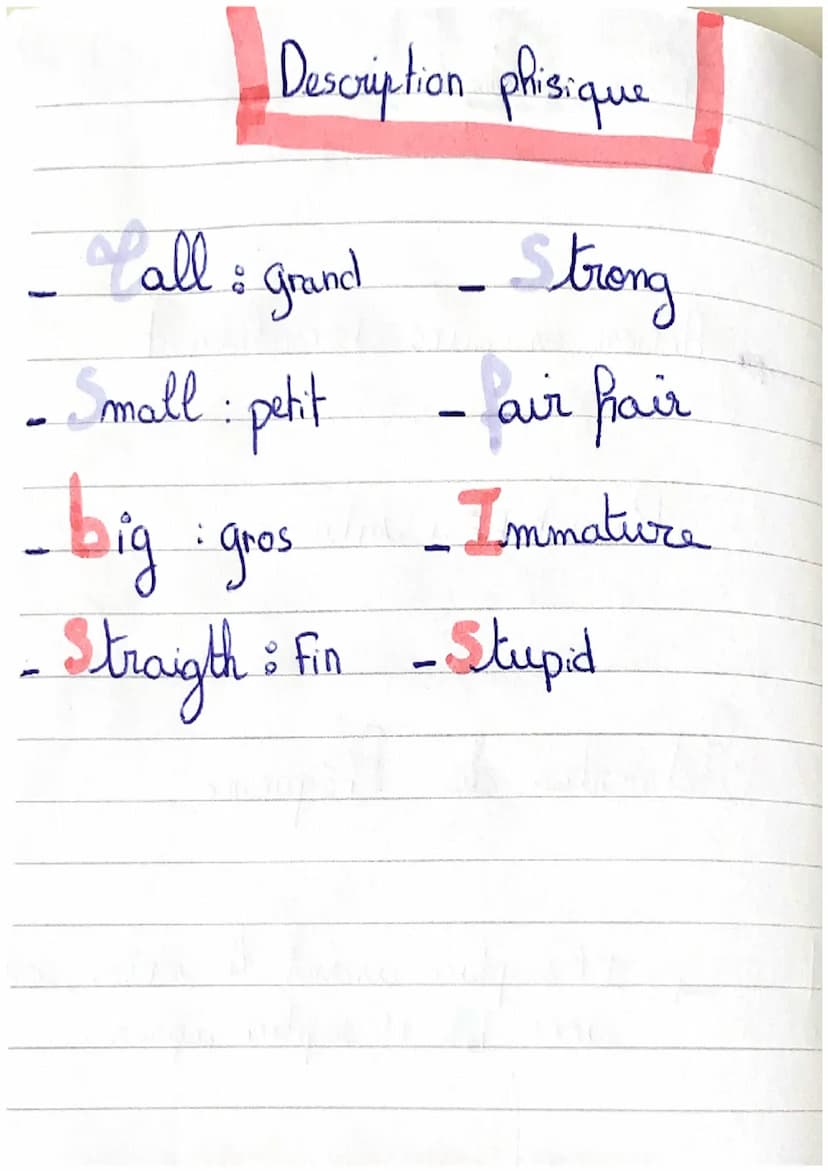 Description phisique
- Tall : grand - Strong
- Small : petit - Fair hair
- big : gros - Immature
- Straigth : Fin - Stupid